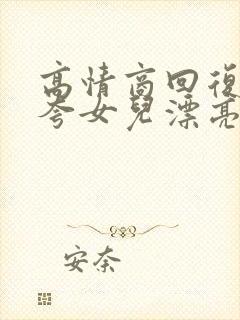 高情商回復
夸女兒漂亮
安奈